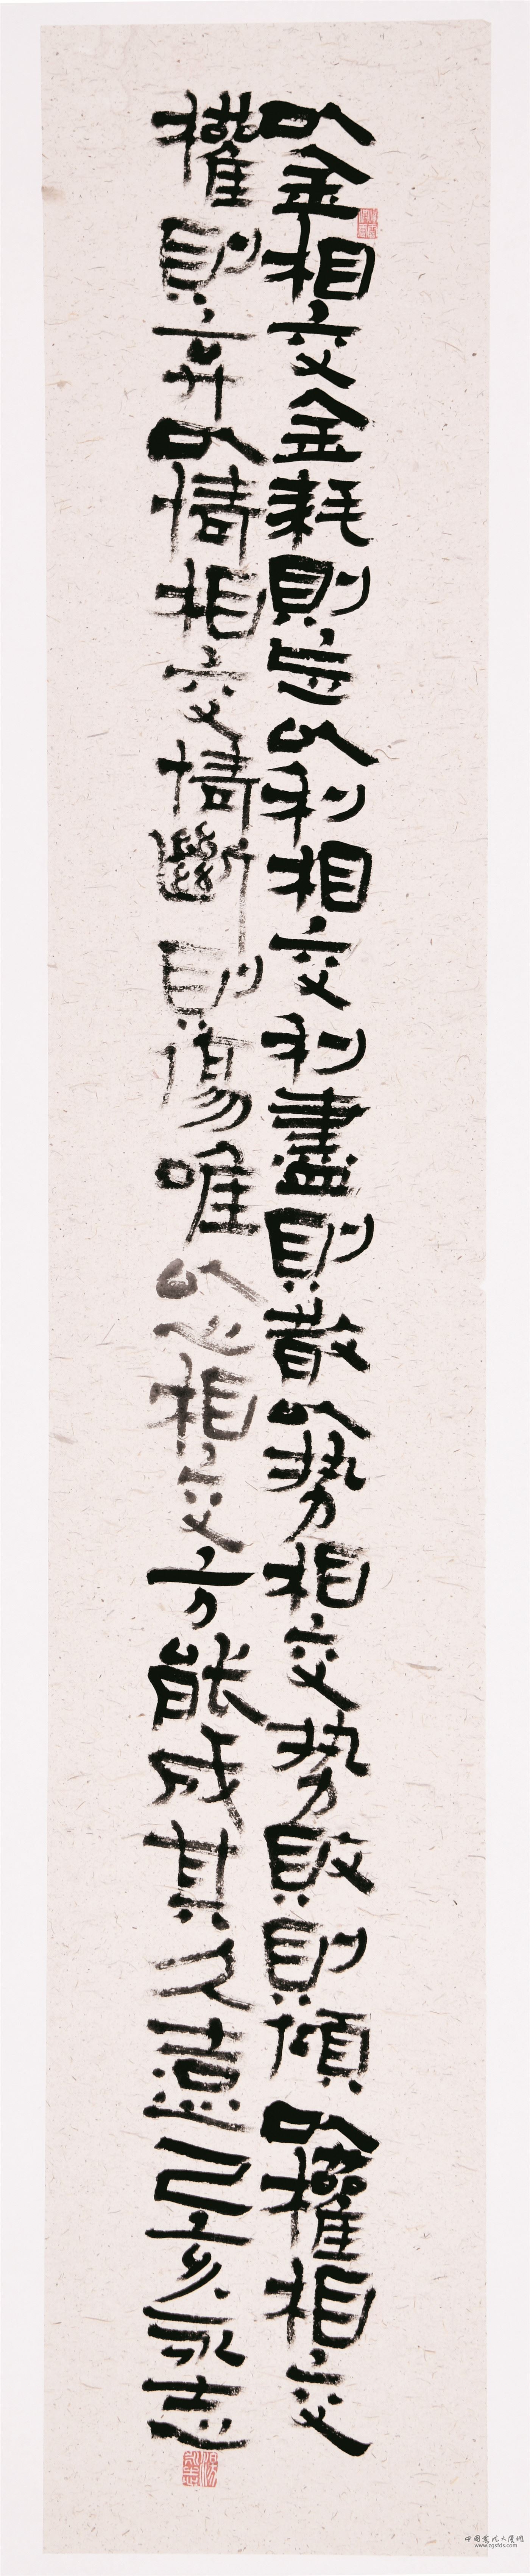 以金相交金耗則忘以利相交利盡則散以势相交势敗則傾以權相交
權則弃以情相交情斷則傷唯以心相交方能成其久遠己亥永志
www.zgsfds.com